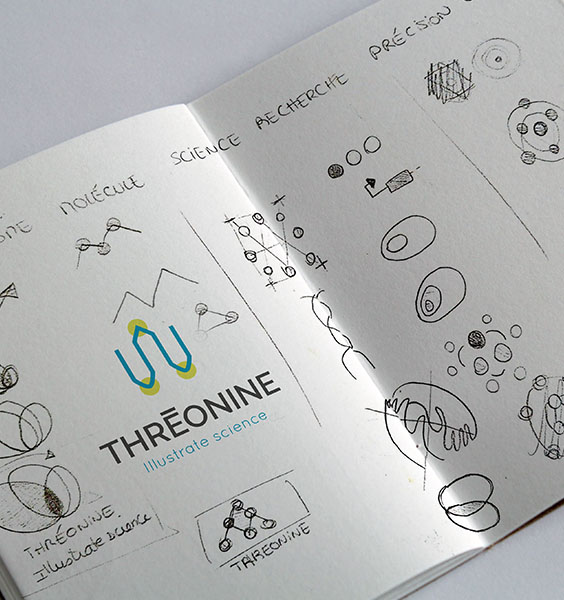 MOLÉCULE
SCIENCE
RECHERCHE
PRÉCISION
THRĒONINE
Illustrate science
THRÉONINE
Illustrate science
THRÉONINE